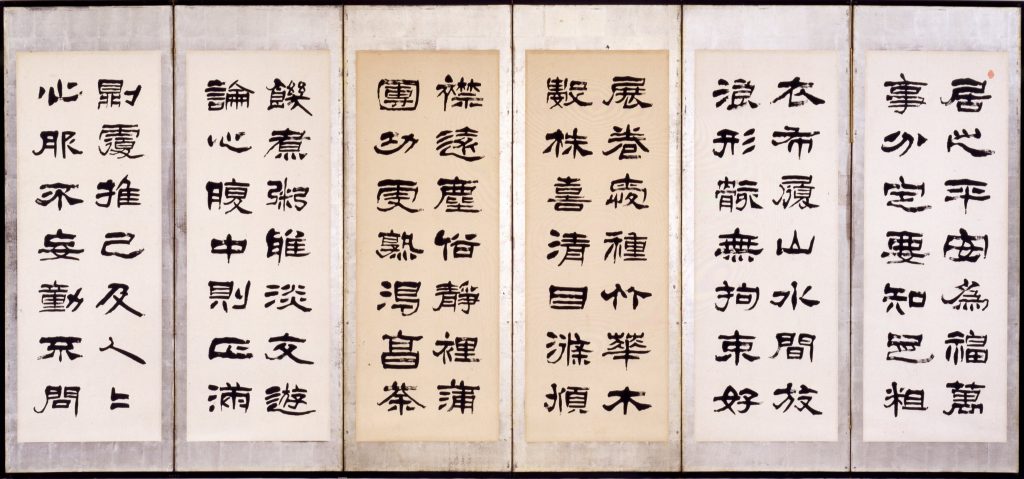 居心平安為福萬
事分定要知足粗
衣布履山水間放
浪形骸無拘束好
展卷爰種竹華木
數株喜清目滌煩
襟遠塵俗靜裡蒲
團功更熟渴烹茶
饑煮粥雖淡交遊
論心腹中則正滿
則覆推己及人〻
心服不妄動不問